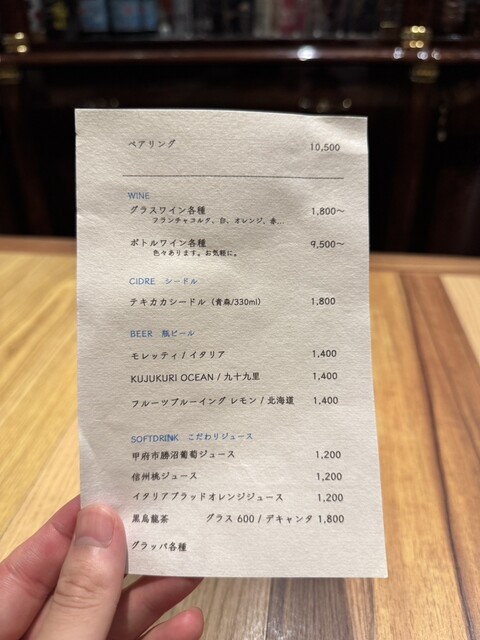 ペアリング 10,500
WINE
グラスワイン各種 1,800〜
フランチャコルタ、白、オレンジ、赤...
ボトルワイン各種 9,500〜
色々あります。お気軽に。
CIDRE シードル
テキカカシードル（青森/330ml） 1,800
BEER 瓶ビール
モレッティ / イタリア 1,400
KUJUKURI OCEAN / 九十九里 1,400
フルーツブルーイング レモン / 北海道 1,400
SOFTDRINK こだわりジュース
甲府市勝沼葡萄ジュース 1,200
信州桃ジュース 1,200
イタリアブラッドオレンジジュース 1,200
黒烏龍茶 グラス 600 / デキャンタ 1,800
グラッパ各種